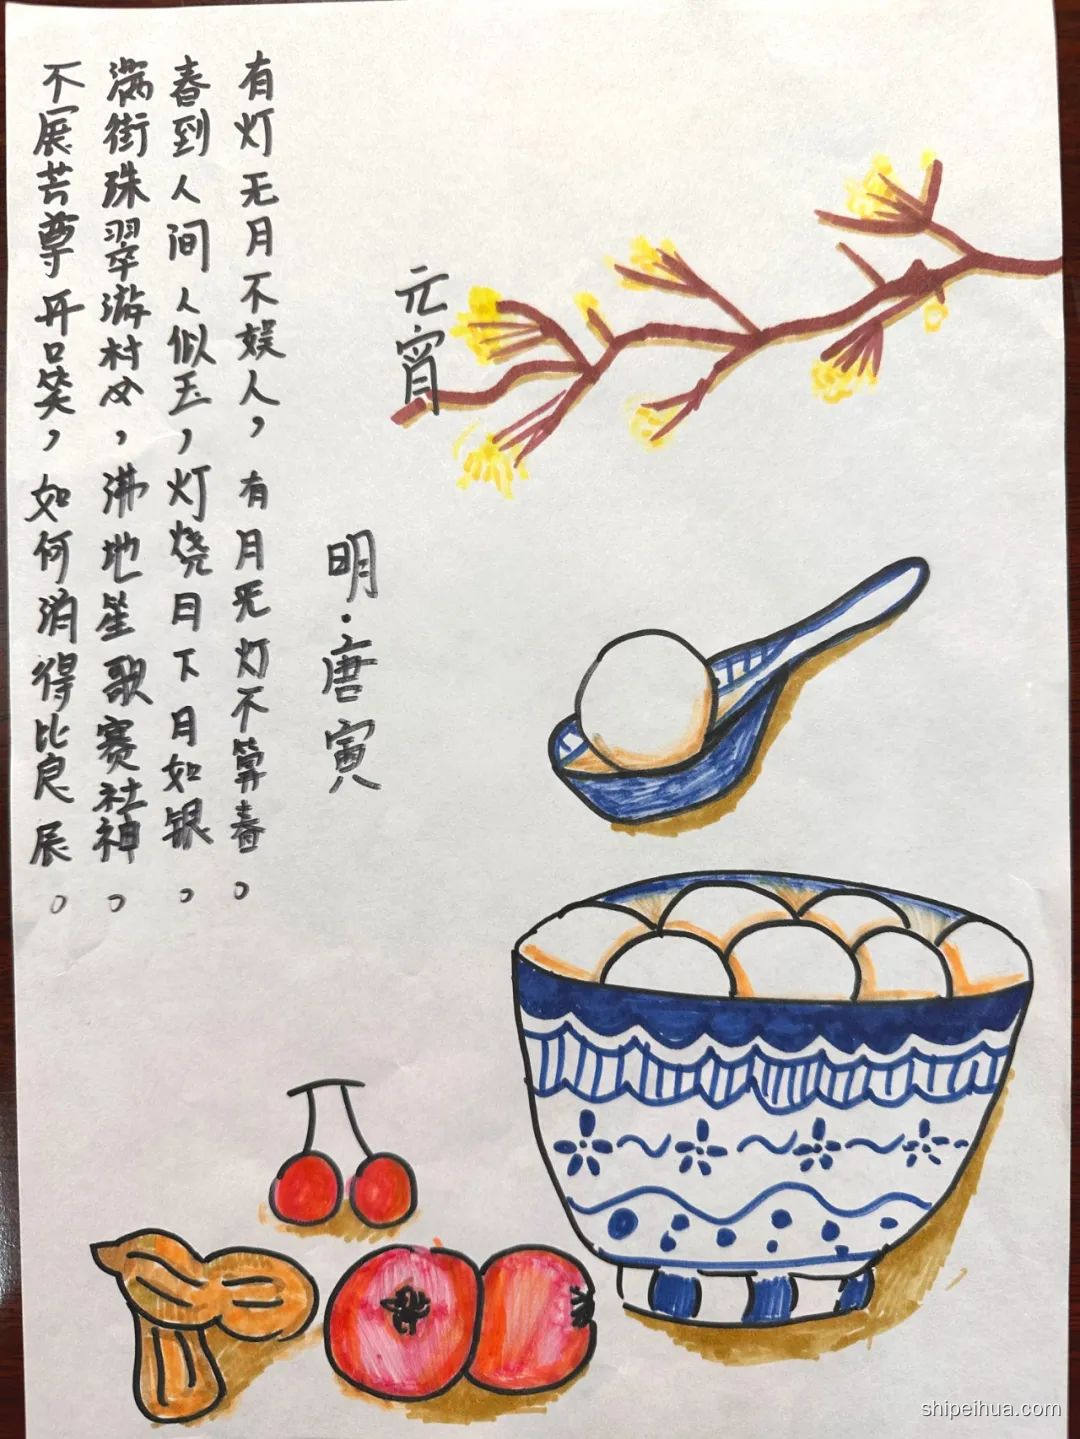 元宵
明·唐寅
有灯无月不娱人，有月无灯不算春。
春到人间人似玉，灯烧月下月如银。
满街珠翠游村女，沸地笙歌赛社神。
不展芳尊开口笑，如何消得比良辰。
shipeihua.com